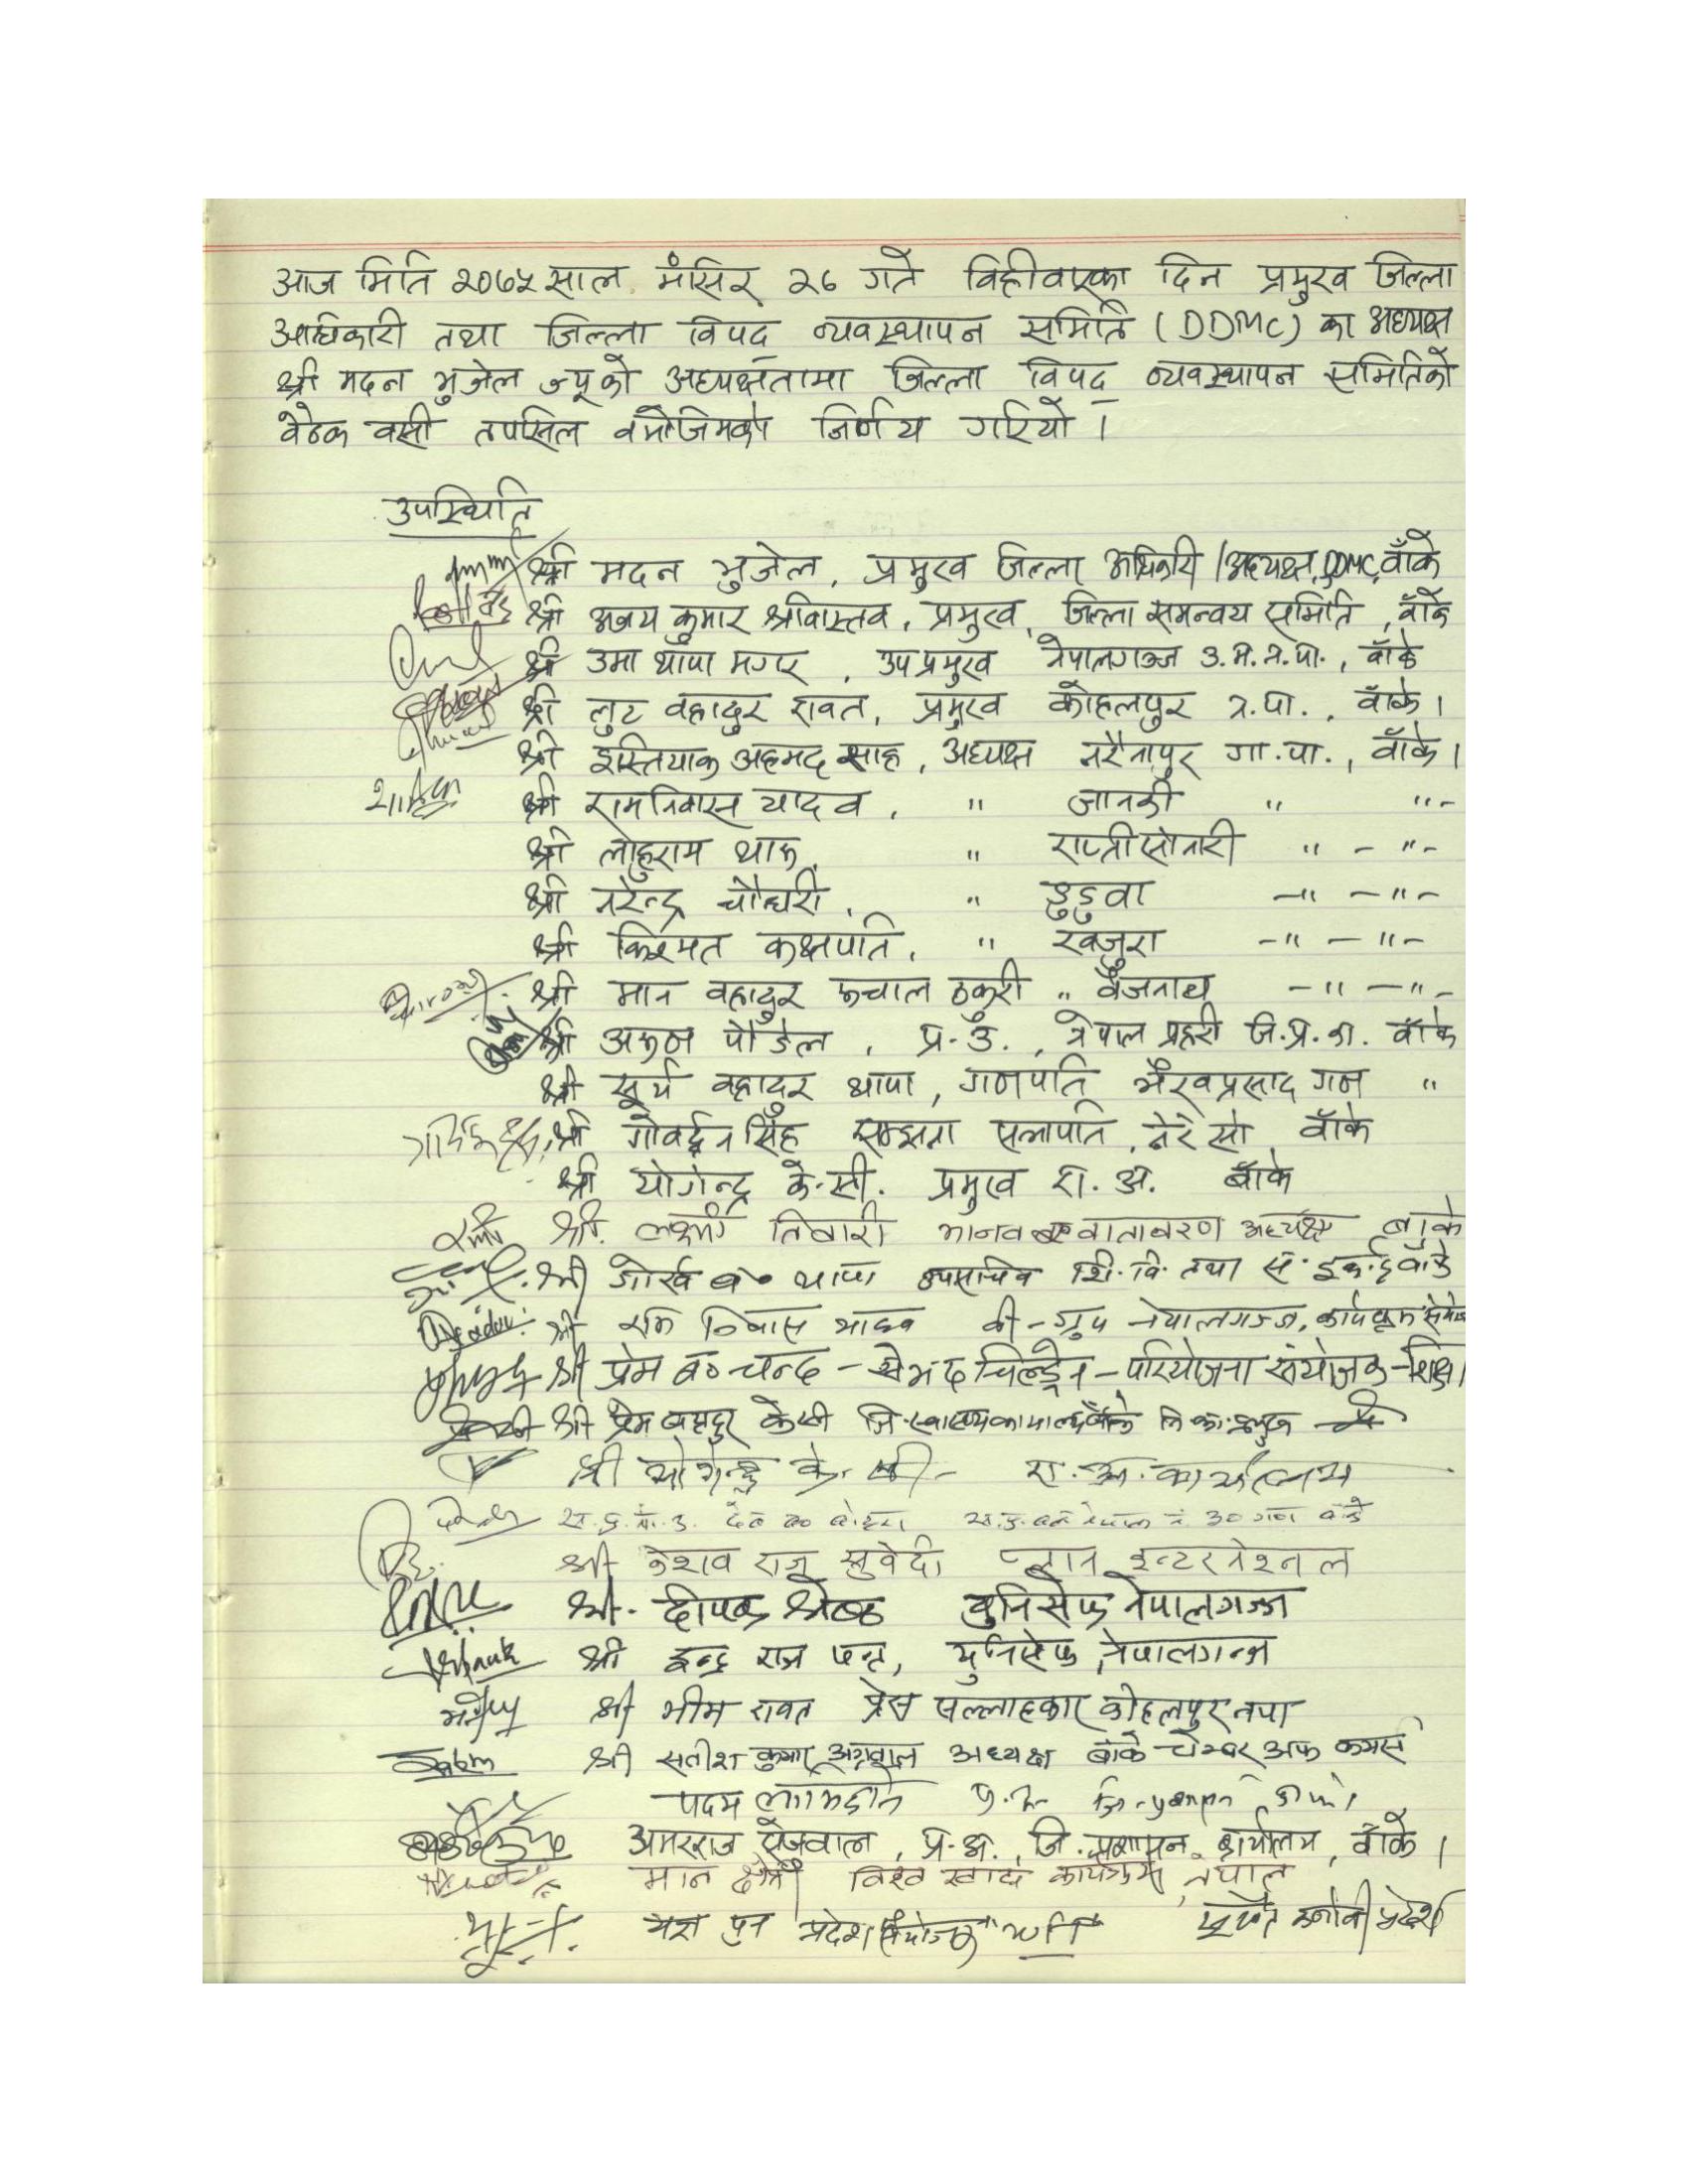 आज मिति २०७५ साल मंसिर २७ गते विहीवारका दिन प्रमुख जिल्ला
अधिकारी तथा जिल्ला विपद् व्यवस्थापन समिति (DDMC) का अध्यक्ष
श्री मदन भुजेल ज्यूको अध्यक्षतामा जिल्ला विपद् व्यवस्थापन समितिको
वैठक वसी तपसिल वमोजिमको निर्णय गरियो ।
उपस्थिति
श्री मदन भुजेल, प्रमुख जिल्ला अधिकारी / अध्यक्ष, DDMC, वाँके
श्री अजय कुमार श्रीवास्तव, प्रमुख, जिल्ला समन्वय समिति, वाँके
श्री उमा थापा मगर, उपप्रमुख नेपालगञ्ज उ.म.न.पा., वाँके
श्री लुट वहादुर रावत, प्रमुख कोहलपुर न.पा., वाँके ।
श्री इस्तियाक अहमद साह, अध्यक्ष नरैनापुर गा.पा., वाँके ।
श्री रामनिवास यादव, " जानकी " "-
श्री लाहुराम थारू, " राप्तीसोनारी " - "-
श्री नरेन्द्र चौधरी, " डुडुवा -" - "-
श्री किस्मत कक्षपति, " खजुरा -" - "-
श्री मान वहादुर रूचाल ठकुरी " वैजनाथ -" - "-
श्री अरूण पौडेल, प्र.उ., नेपाल प्रहरी जि.प्र.का. वाँके
श्री सूर्य वहादुर थापा, गणपति भैरवप्रसाद गण "
श्री गोवर्द्धन सिंह सम्झना सभापति, नेरेसो, वाँके
श्री योगेन्द्र के.सी. प्रमुख रा.अ. बाँके
श्री. लक्ष्मी तिवारी मानव वातावरण अध्यक्ष बाँके
श्री गोर्ख ब० थापा उपसचिव शि.वि. तथा स. इकाई वाँके
श्री राम निवास यादव वी-ग्रुप नेपालगञ्ज, कार्यक्रम
श्री प्रेम ब० चन्द - सेभ द चिल्ड्रेन - परियोजना संयोजक - शिक्षा
श्री प्रेम बहादुर केसी जि.स्वास्थ्य कार्यालय बाँके नि.का.प्रमुख
श्री योगेन्द्र के. सी - रा.अ.कार्यालय
श्री केशव राज सुवेदी प्लान इन्टरनेशनल
श्री. दीपक श्रेष्ठ युनिसेफ नेपालगञ्ज
श्री इन्द्र राज पन्त, युनिसेफ, नेपालगन्ज
श्री भीम रावत प्रेस सल्लाहकार कोहलपुर नपा
श्री सतीश कुमार अग्रवाल अध्यक्ष बाँके चेम्बर अफ कमर्स
पदम लामिछाने
अमरराज रोजवाल, प्र.अ., जि.प्रशासन कार्यालय, वाँके ।
मान क्षेत्री विश्व खाद्य कार्यक्रम, नेपाल
यश पुन प्रदेश संयोजक